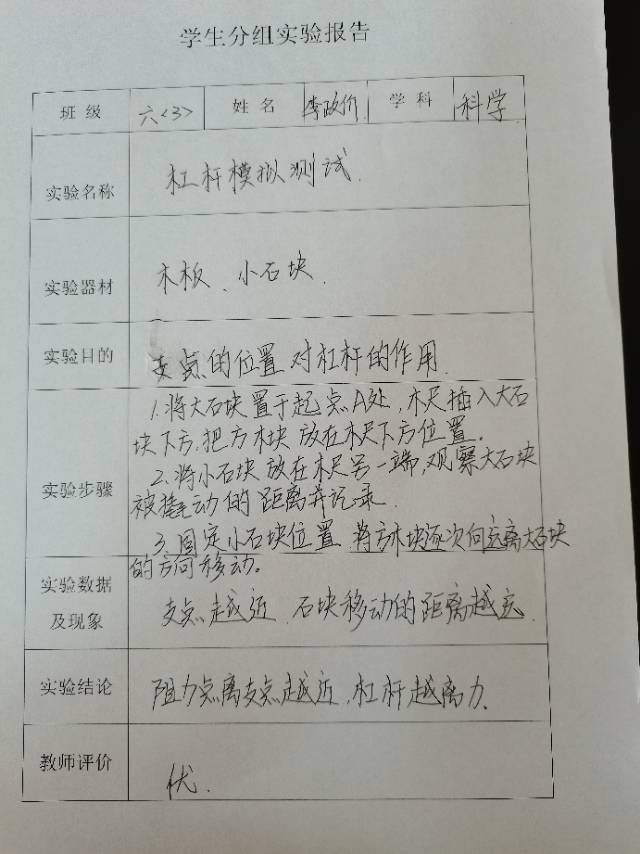 学生分组实验报告
班级 六<3> 姓名 李政价 学科 科学
实验名称 杠杆模拟测试.
实验器材 木板、小石块.
实验目的 支点的位置对杠杆的作用.
1.将大石块置于起点A处,木尺插入大石
块下方.把方木块放在木尺下方位置.
实验步骤
2.将小石块放在木尺另一端,观察大石块
被撬动的距离并记录.
3.固定小石块位置 将方木块逐次向远离大石块
的方向移动。
实验数据
及现象
支点越近 石块移动的距离越远.
实验结论 阻力点离支点越近,杠杆越离力.
教师评价 优.